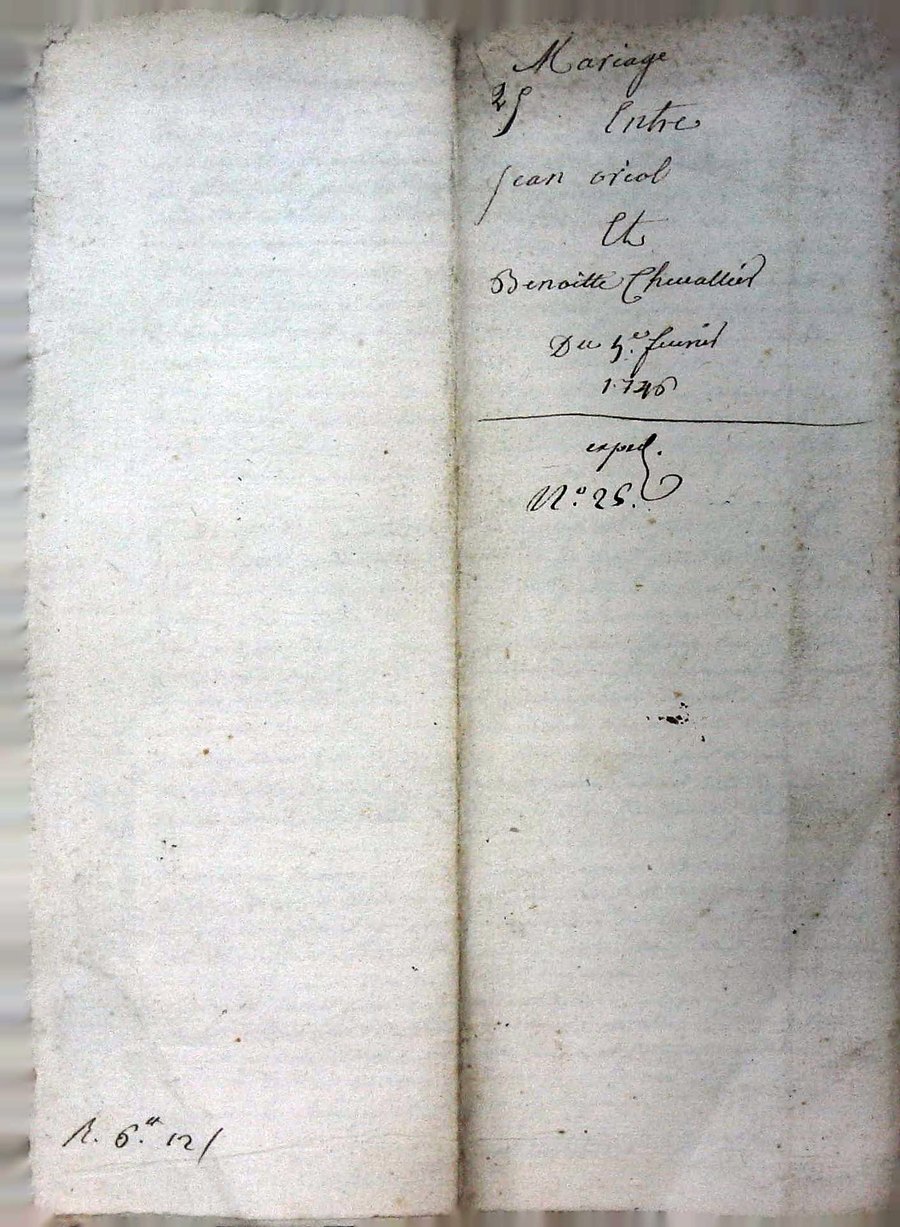 Mariage
25
Entre
Jean oriol
Et
Benoitte Chevallier
Du 5.e fevrier
1746
exped.
N.o 25.
R. 6.# 12 s